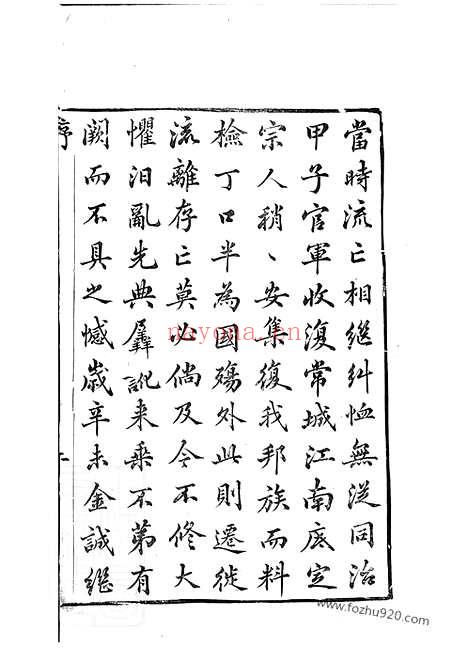 當時流亡相繼糾恤無從同治
甲子官軍收復常城江南底定
宗人稍、安集復我邦族而料
檢丁口半為國殤外此則遷徙
流離存亡莫必倘及今不修大
懼汨亂先典羼訛来乘不第有
闕而不具之憾歲辛未金誠繼
序
nayona.cn
www.fozhu920.com